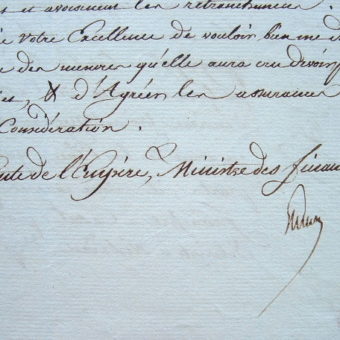 s et avoisinent les retranchemens.
ie votre Excellence de vouloir bien me d
e des mesures qu'elle aura cru devoir p
es, & d'Agréer les assurances
Considération.
mte de l'Empire, Ministre des finan